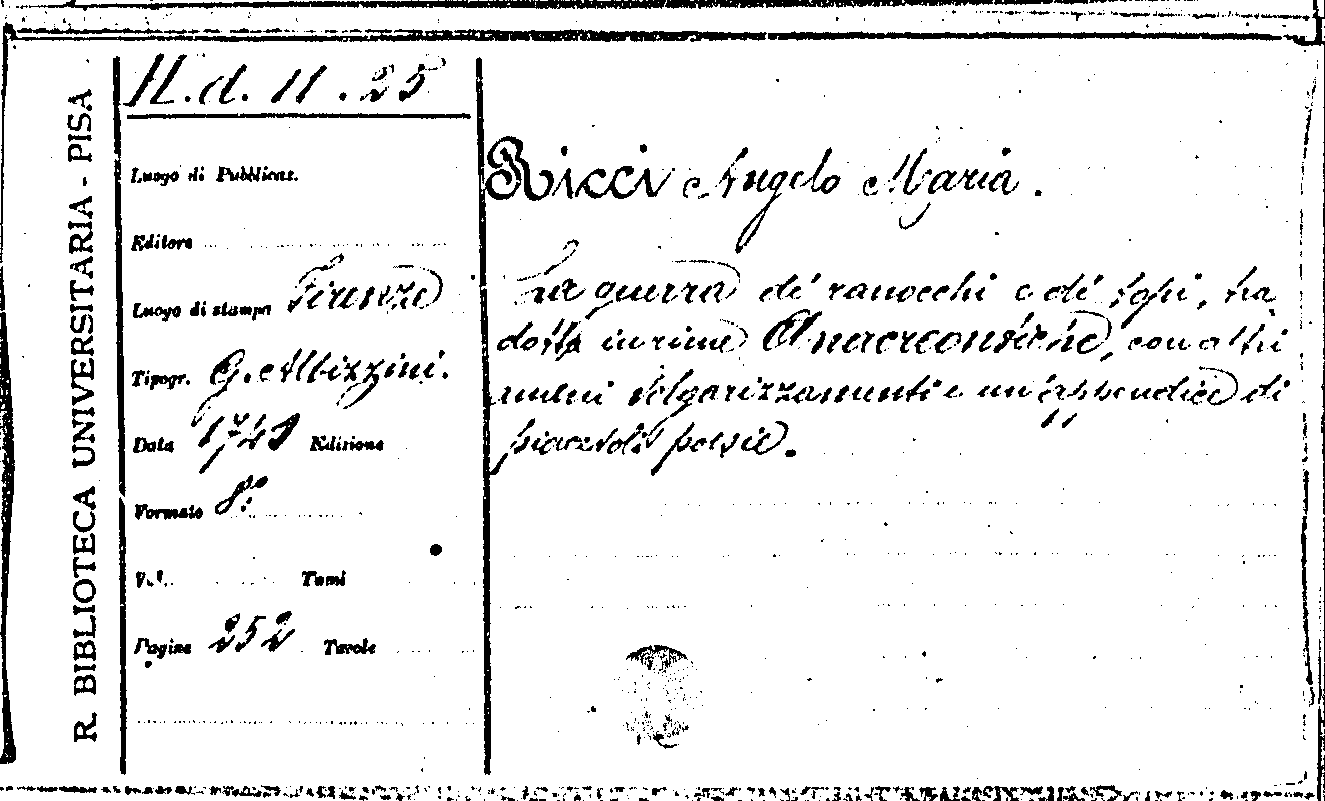 R. BIBLIOTECA UNIVERSITARIA - PISA
H. d. 11. 25
Luogo di Pubblicaz.
Editore
Luogo di stampa Firenze
Tipogr. G. Albizzini.
Data 1741 Edizione
Formato 8º
Vol. Tomi
Pagine 252 Tavole
Ricci Angelo Maria.
La guerra de' ranocchi e de' topi, tra
dotta in rime Anacreontiche, con altri
ameni volgarizzamenti e un'appendice di
piacevoli poesie.